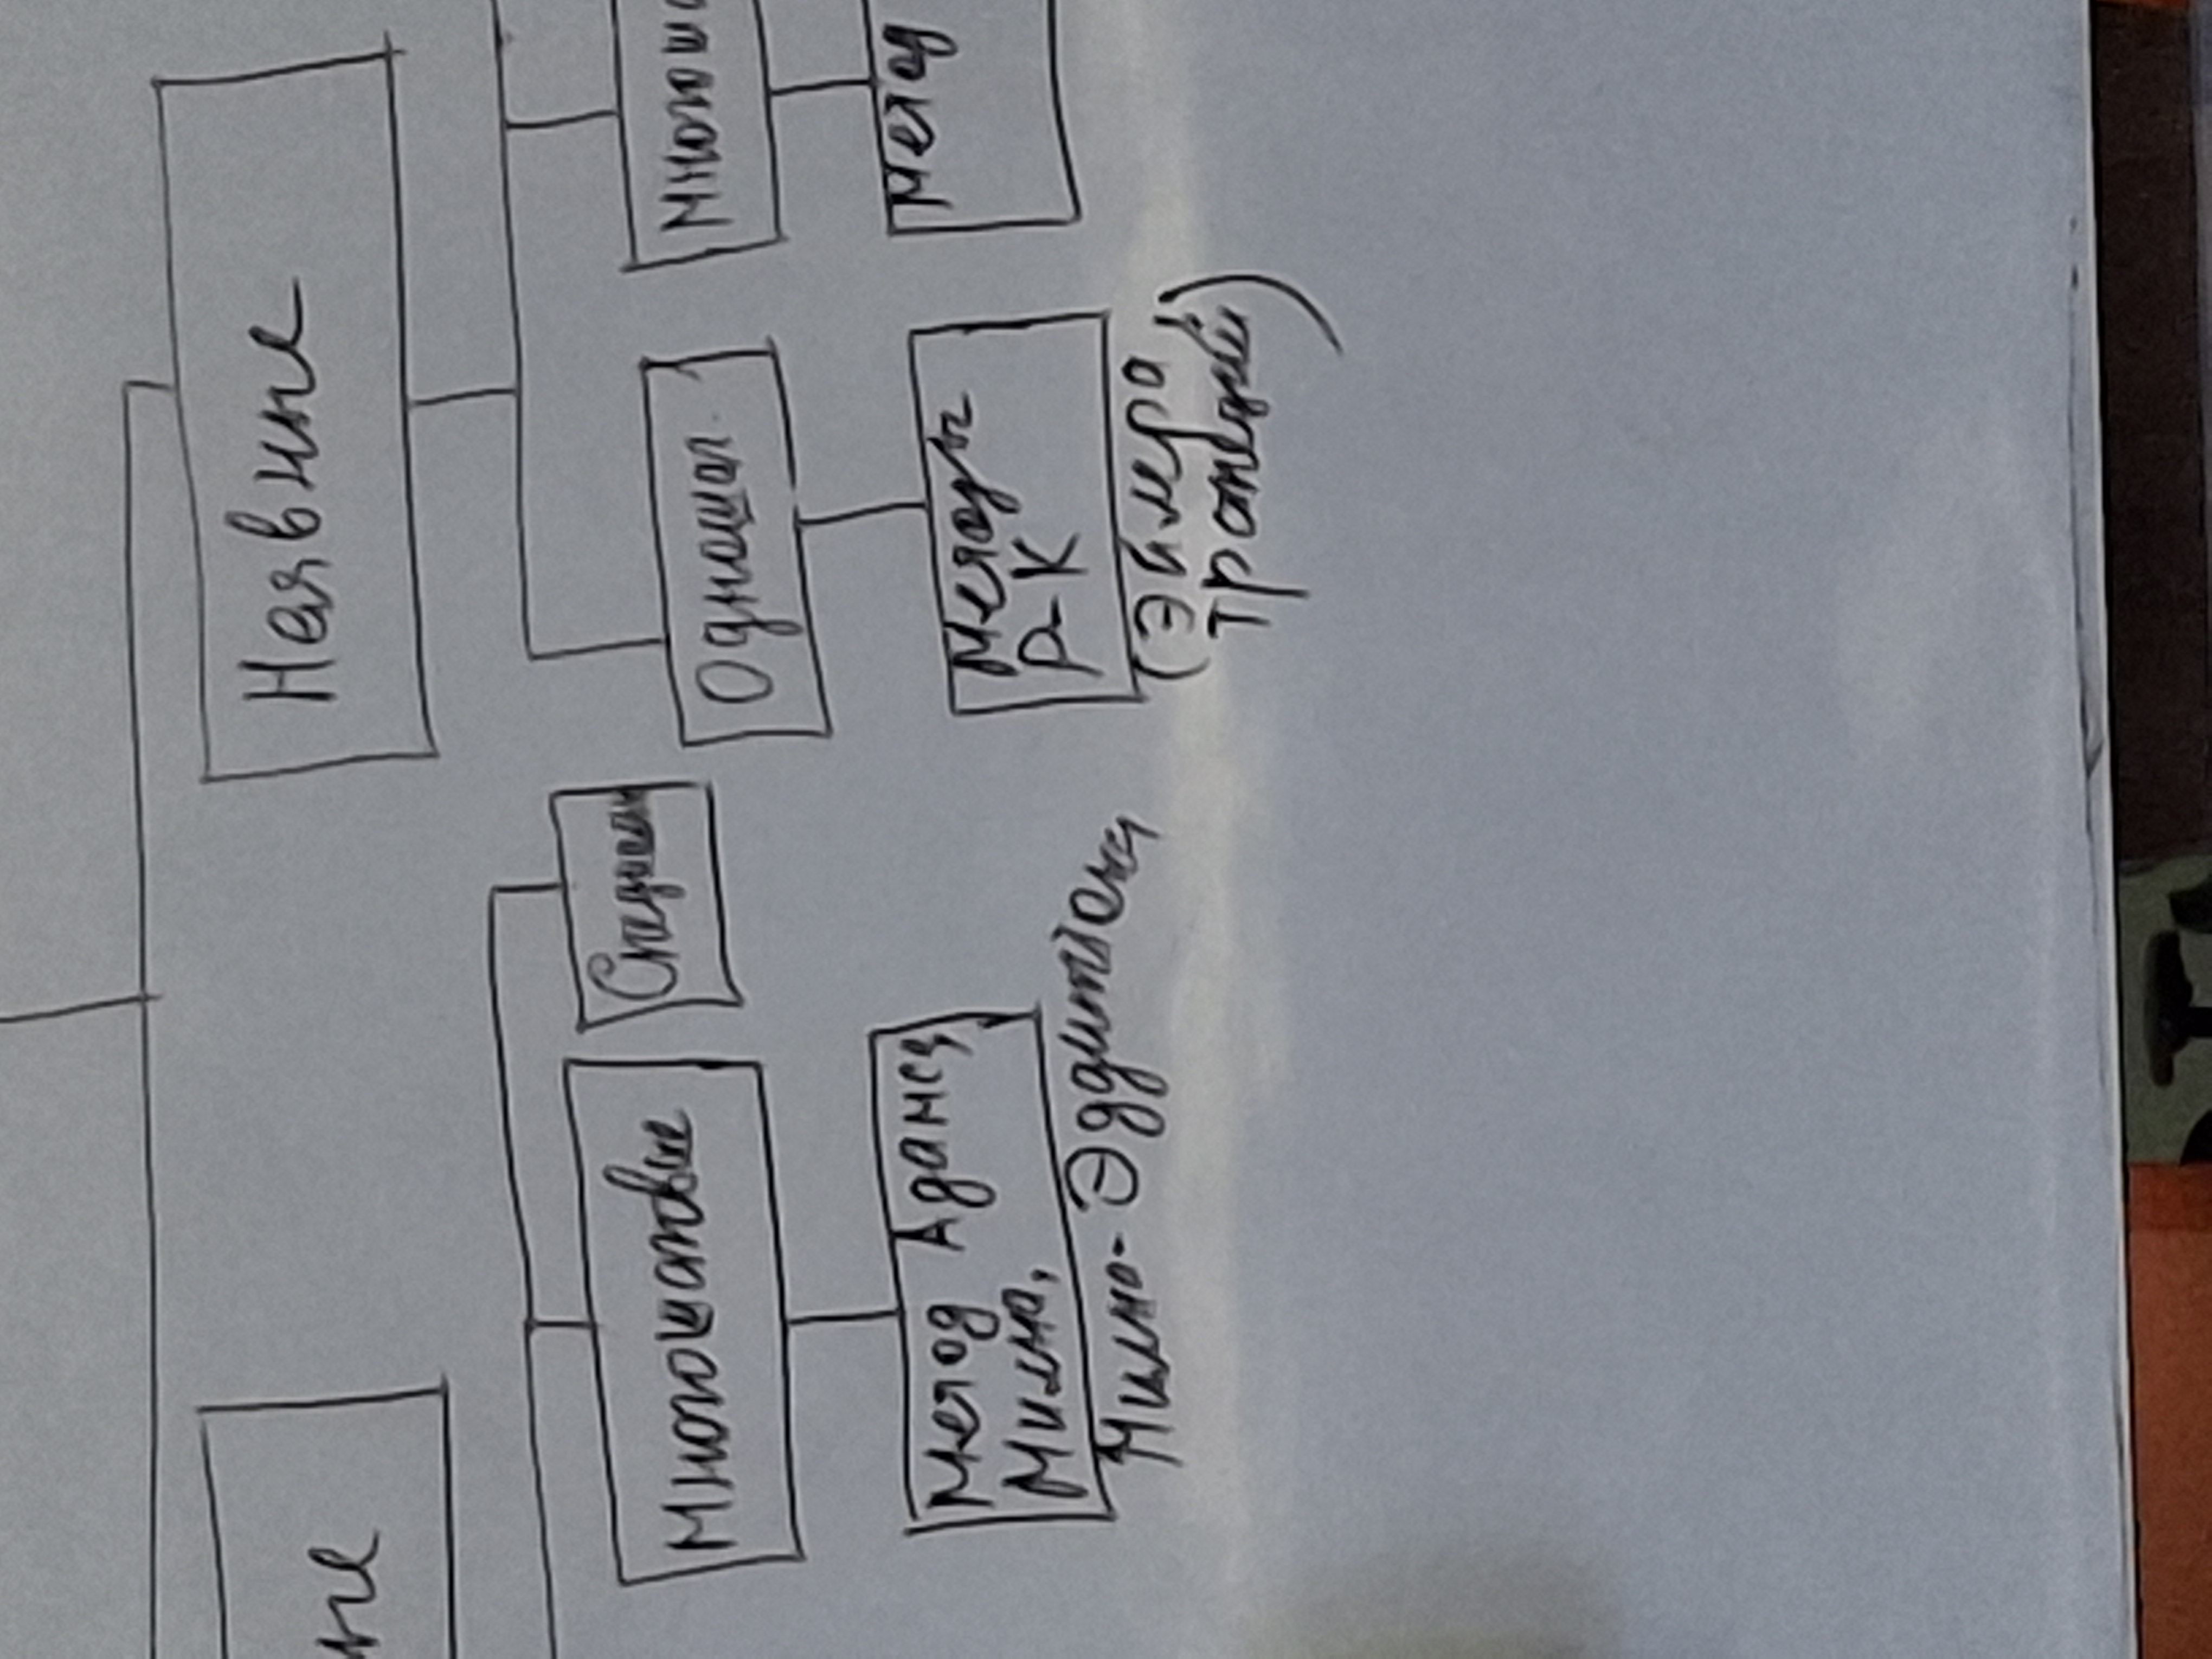 ные
Неявные
Многошаговые
Специальн
Одношаг.
Многоша
Метод Адамса,
Милна,
Милна-Эддигтона
Методы
Р-К
(Эйлера,
трапеций)
Метод